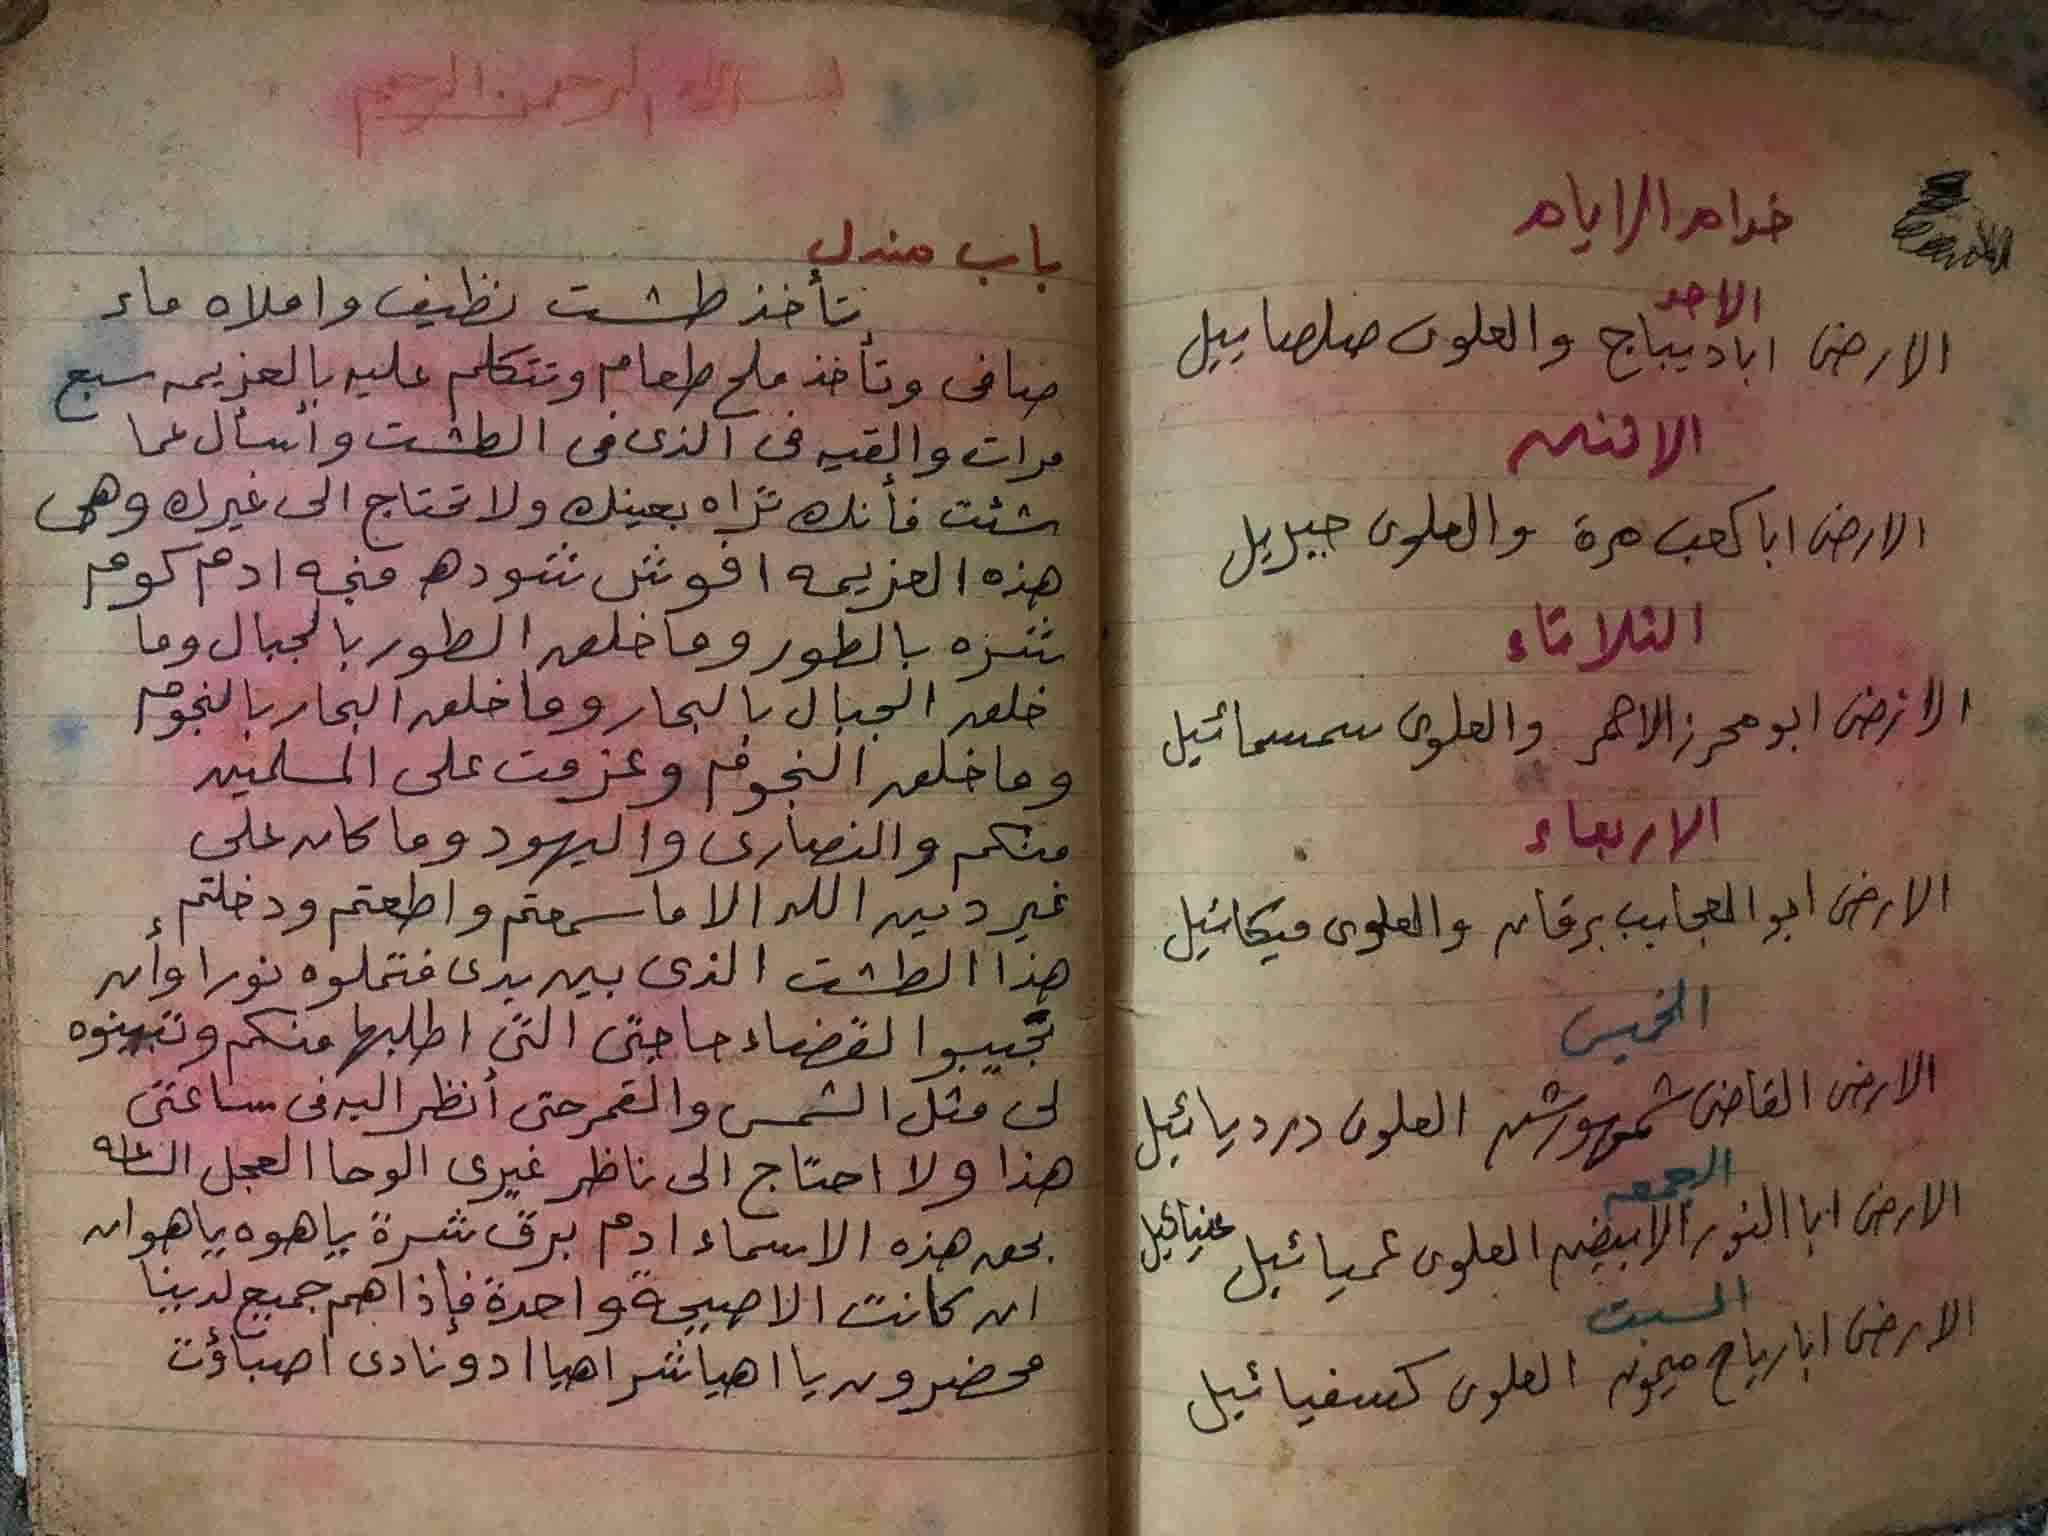 خدام الايام
الاحد
الارضى ابا ديباج والعلوى صلصاييل
الاثنين
الارضى ابا كعب مرة والعلوى جبريل
الثلاثاء
الارضى ابو محرز الاحمر والعلوى سمسمائيل
الاربعاء
الارضى ابو العجايب برقان والعلوى ميكائيل
الخميس
الارضى القاضى شمهورش العلوى دردبائيل
الجمعه
الارضى ابا النور الابيض العلوى عميائيل عنيائيل
السبت
الارضى ابا رياح ميمون العلوى كسفيائيل
بسم الله الرحمن الرحيم
باب مندل
تأخذ طشت نظيف واملاه ماء
صافى وتأخذ ملح طعام وتتكلم عليه بالعزيمه سبع
مرات والقيه فى الذى فى الطشت وأسأل عما
شئت فأنك تراه بعينك ولا تحتاج الى غيرك وهى
هذه العزيمه افوش شوده منجه ادم كوم
شزه بالطور وما خلف الطور بالجبال وما
خلف الجبال بالبحار وما خلف البحار بالنجوم
وما خلف النجوم وعزمت على المسلمين
منكم والنصارى واليهود وما كان على
غير دين الله الا ما سمعتم واطعتم ودخلتم
هذا الطشت الذى بين يدى فتملوه نورا وأن
تجيبوا لقضاء حاجتى التى اطلبها منكم وتبينوه
لى مثل الشمس والقمر حتى أنظر اليه فى ساعتى
هذا ولا احتاج الى ناظر غيرى الوحا العجل الساعه
بحق هذه الاسماء ادم برق شرة ياهوه ياهوان
ان كانت الا صيحة واحدة فإذا هم جميع لدينا
محضرون يا اهيا شراهيا ادونادى اصباؤت